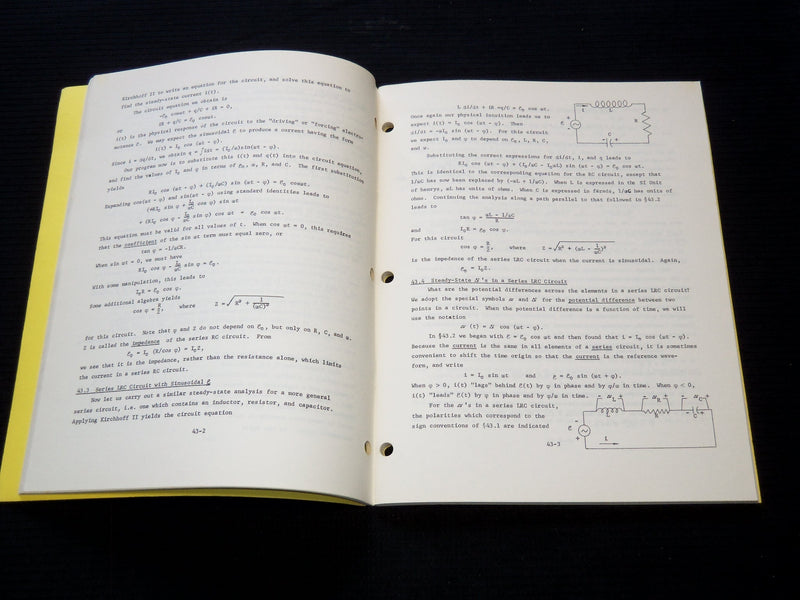 Kirchhoff II to write an equation for the circuit, and solve this equation to
find the steady-state current i(t).
The circuit equation we obtain is
-ℰ₀ cosωt + q/C + iR = 0,
or
iR + q/C = ℰ₀ cosωt.
i(t) is the physical response of the circuit to the "driving" or "forcing" electro-
motance ℰ. We may expect the sinusoidal ℰ to produce a current having the form
i(t) = I₀ cos (ωt - φ).
Since i = dq/dt, we obtain q = ∫idt = (I₀/ω)sin(ωt - φ).
Our program now is to substitute this i(t) and q(t) into the circuit equation,
and find the values of I₀ and φ in terms of ℰ₀, ω, R, and C. The first substitution
yields
RI₀ cos(ωt - φ) + (I₀/ωC) sin (ωt - φ) = ℰ₀ cosωt.
Expanding cos(ωt - φ) and sin(ωt - φ) using standard identities leads to
(+RI₀ sin φ + I₀/ωC cos φ) sin ωt
+ (RI₀ cos φ - I₀/ωC sin φ) cos ωt = ℰ₀ cos ωt.
This equation must be valid for all values of t. When cos ωt = 0, this requires
that the coefficient of the sin ωt term must equal zero, or
tan φ = -1/ωCR.
When sin ωt = 0, we must have
RI₀ cos φ - I₀/ωC sin φ = ℰ₀.
With some manipulation, this leads to
I₀R = ℰ₀ cos φ.
Some additional algebra yields
cos φ = R/Z, where Z = √(R² + 1/(ωC)²)
for this circuit. Note that φ and Z do not depend on ℰ₀, but only on R, C, and ω.
Z is called the impedance of the series RC circuit. From
ℰ₀ = I₀ (R/cos φ) = I₀Z,
we see that it is the impedance, rather than the resistance alone, which limits
the current in a series RC circuit.
43.3 Series LRC Circuit with Sinusoidal ℰ
Now let us carry out a similar steady-state analysis for a more general
series circuit, i.e. one which contains an inductor, resistor, and capacitor.
Applying Kirchhoff II yields the circuit equation
43-2
L di/dt + iR +q/C = ℰ₀ cos ωt.
Once again our physical intuition leads us to
expect i(t) = I₀ cos (ωt - φ). Then
di/dt = -ωI₀ sin (ωt - φ). For this circuit
we expect I₀ and φ to depend on ℰ₀, L, R, C,
and ω.
L
R
C
- +
ℰ
i
Substituting the correct expressions for di/dt, i, and q leads to
RI₀ cos (ωt - φ) + (I₀/ωC - I₀ωL) sin (ωt - φ) = ℰ₀ cos ωt.
This is identical to the corresponding equation for the RC circuit, except that
1/ωC has now been replaced by (-ωL + 1/ωC). When L is expressed in the SI Unit
of henrys, ωL has units of ohms. When C is expressed in farads, 1/ωC has units of
ohms. Continuing the analysis along a path parallel to that followed in §43.2
leads to
tan φ = (ωL - 1/ωC)/R
and
I₀R = ℰ₀ cos φ.
For this circuit
cos φ = R/Z, where Z = √(R² + (ωL - 1/ωC)²)
is the impedance of the series LRC circuit when the current is sinusoidal. Again,
ℰ₀ = I₀Z.
43.4 Steady-State Δv's in a Series LRC Circuit
What are the potential differences across the elements in a series LRC circuit?
We adopt the special symbols v and V for the potential difference between two
points in a circuit. When the potential difference is a function of time, we will
use the notation
v (t) = V cos (ωt - φ).
In §43.2 we began with ℰ = ℰ₀ cos ωt and then found that i = I₀ cos (ωt - φ).
Because the current is the same in all elements of a series circuit, it is sometimes
convenient to shift the time origin so that the current is the reference wave-
form, and write
i = I₀ sin ωt and ℰ = ℰ₀ sin (ωt + φ).
When φ > 0, i(t) "lags" behind ℰ(t) by φ in phase and by φ/ω in time. When φ < 0,
i(t) "leads" ℰ(t) by φ in phase and by φ/ω in time.
For the v's in a series LRC circuit,
the polarities which correspond to the
sign conventions of §43.1 are indicated
- v_L + - v_R + - v_C +
L
R
C
ℰ
i
43-3